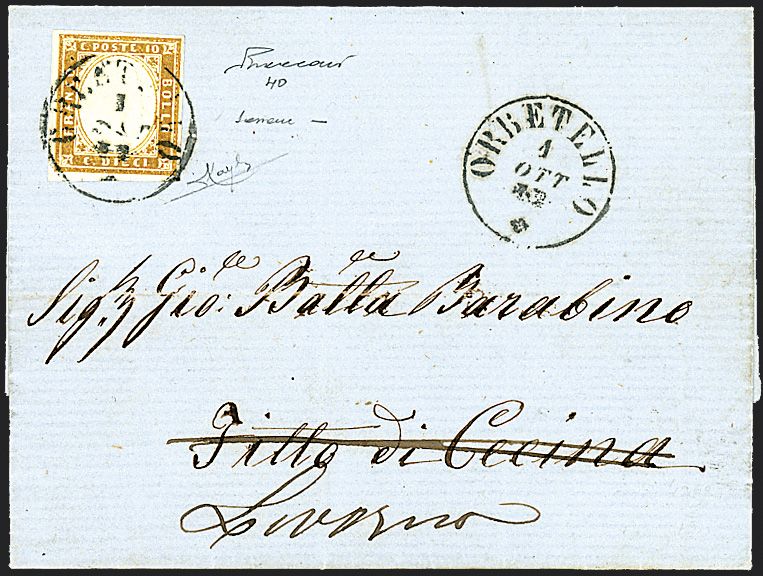 C. POSTE. 10
BOLLO
C. DIECI.
40
ORBETELLO
1
OTT
Sig.r Gio: Batta Barabino
Fitto di Cecina
Livorno